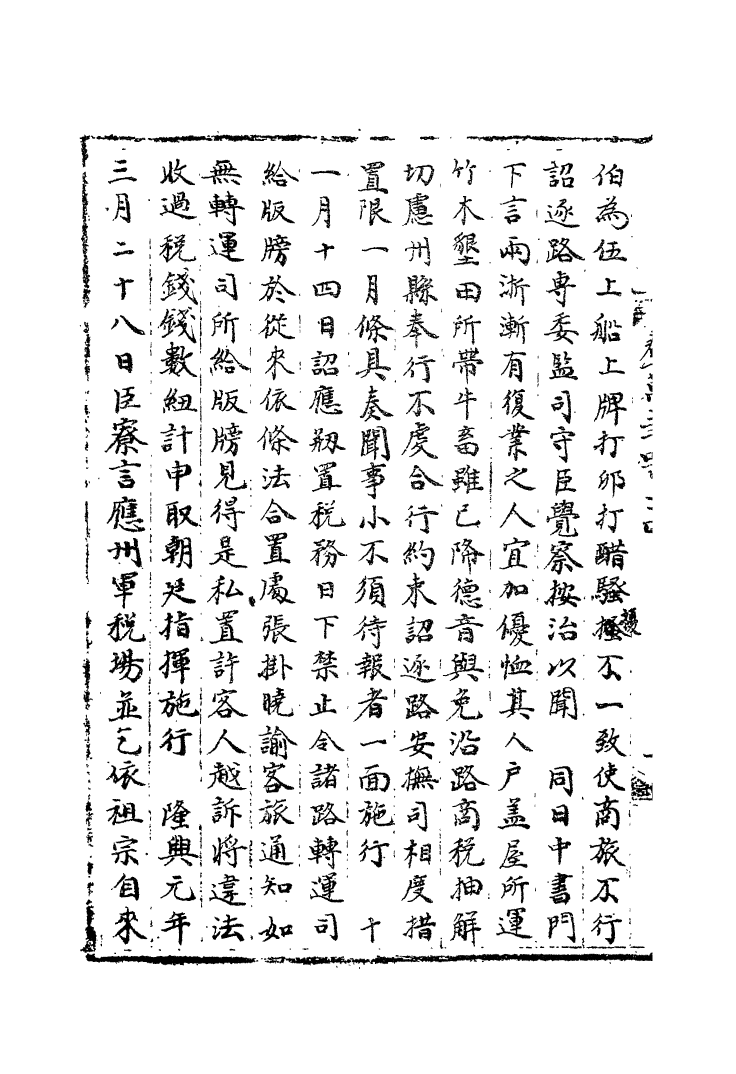 伯為伍上船上牌打卯打醋騷擾不一致使商旅不行
詔逐路専委監司守臣覺察按治以聞　同日中書門
下言兩浙漸有復業之人宜加優恤其人户盖屋所運
竹木墾田所帶牛畜雖已降德音與免沿路商税抽解
切慮州縣奉行不虔合行約束詔逐路安撫司相度措
置限一月條具奏聞事小不須待報者一面施行　十
一月十四日詔應剏置税務日下禁止令諸路轉運司
給版牓於從來依條法合置處張掛曉諭客旅通知如
無轉運司所給版牓見得是私置許客人越訴將違法
收過税錢錢數紐計申取朝廷指揮施行　隆興元年
三月二十八日臣寮言應州軍税場並乞依祖宗自來